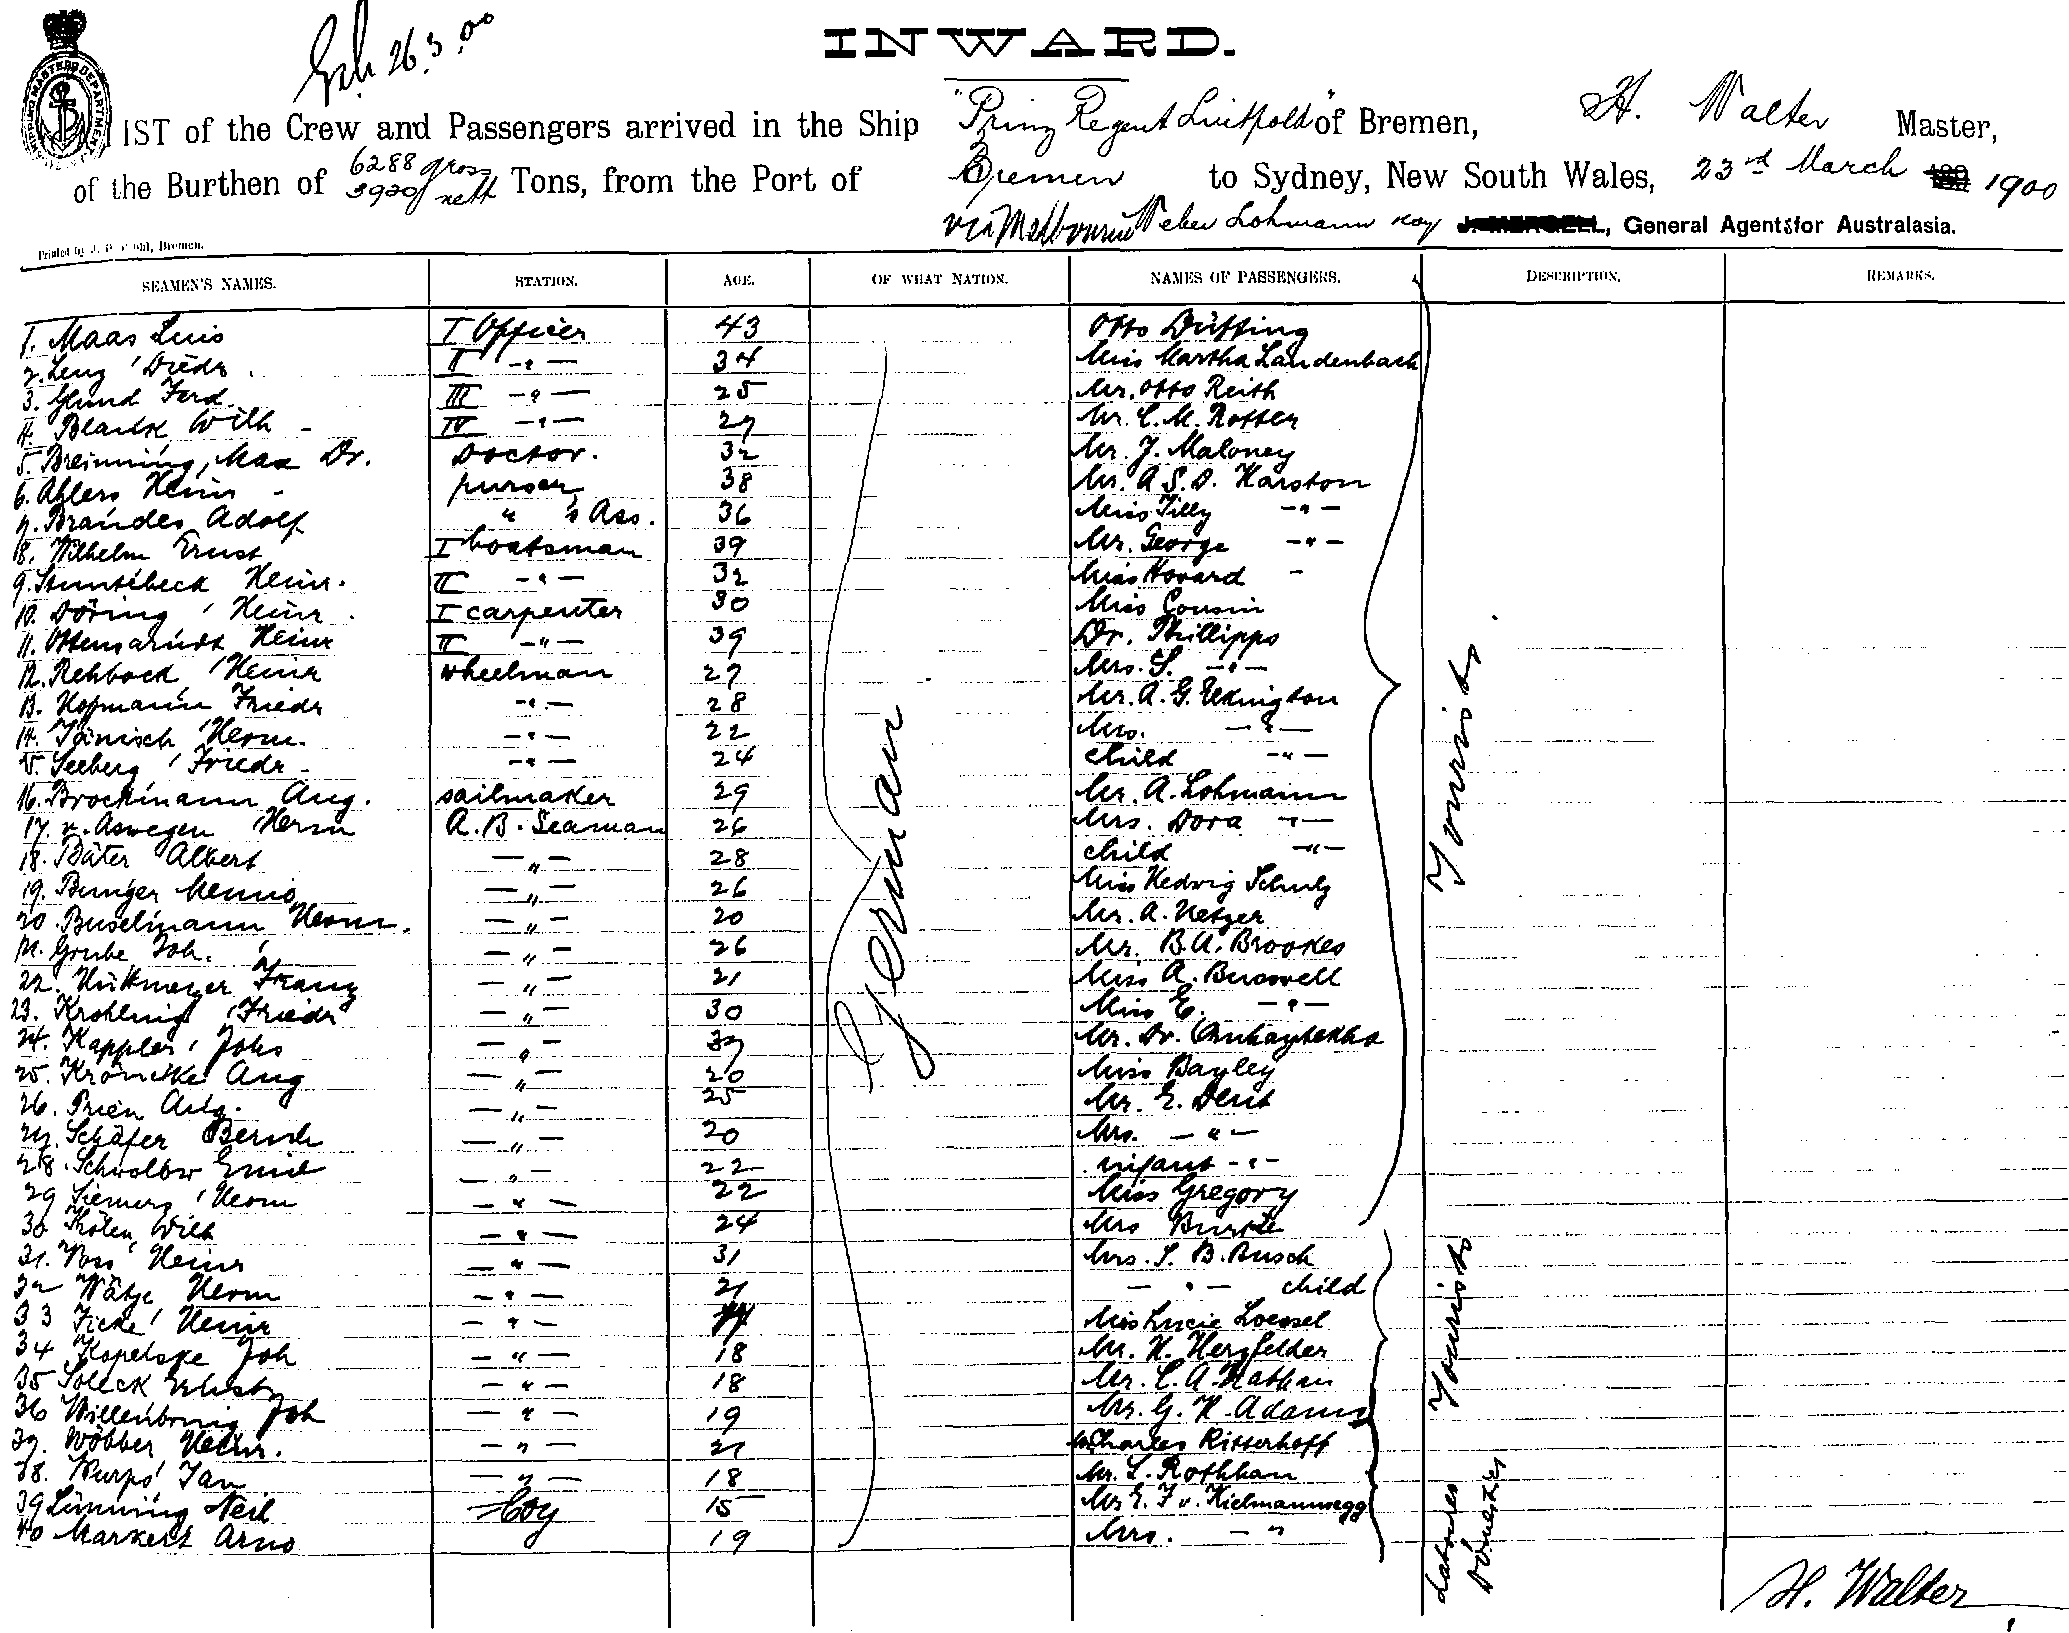 26.3.00
INWARD.
LIST of the Crew and Passengers arrived in the Ship "Prinz Regent Luitpold" of Bremen, H. Walter Master,
of the Burthen of 6288 gross 3920 nett Tons, from the Port of Bremen to Sydney, New South Wales, 23rd March 1900
via Melbourne Weber Lohmann , General Agents for Australasia.
SEAMEN'S NAMES. STATION. AGE. OF WHAT NATION. NAMES OF PASSENGERS. DESCRIPTION. REMARKS.
1. Maas Luis I Officer 43 Otto Düffing
2. Lenz Diedr. II -"- 34 Miss Martha Landenbach
3. Glund Ferd. III -"- 25 Mr. Otto Reith
4. Wilh - IV -"- 27 Mr. C. M. Rotter
5. Breinning, Max Dr. Doctor. 32 Mr. J. Maloney
6. Ahlers Heinr - purser 38 Mr. A. S. D. Karston
7. Brandes Adolf " 's Ass. 36 Miss Tilly -"-
8. Wilhelm Ernst I boatsman 39 Mr. George -"-
9. Stuntebeck Heinr. II -"- 32 Miss Hovard -
10. Döring Heinr. I carpenter 30 Miss Cousin
11. Heinr II -"- 39 Dr. Phillipps
12. Rehbock Heinr wheelman 27 Mrs. S. -"-
13. Hofmann Friedr -"- 28 Mr. A. G. Elkington
14. Jänisch Herm. -"- 22 Mrs. -"-
15. Seeberg Friedr. -"- 24 child -"-
16. Brockmann Aug. sailmaker 29 Mr. A. Lohmann
17. v. Aswegen Herm A. B. Seaman 26 Mrs. Dora -"-
18. Bäter Albert -"- 28 child -"-
19. Bunger Menno -"- 26 Miss Hedwig Schulz
20. Buselmann Herm. -"- 20 Mr. A. Netzer
21. Grube Joh. -"- 26 Mr. B. A. Brookes
22. Franz -"- 21 Miss A. Buswell
23. Krohling Friedr -"- 30 Miss E. -"-
24. Kappler, Johs -"- 37 Mr. Dr.
25. Kröncke Aug -"- 20 Miss Bayley
26. Prien Aug. -"- 25 Mr. E. Dent
27. Schäfer Bernh -"- 20 Mrs. -"-
28. Schwollow Emil -"- 22 infant -"-
29 Siemers Herm -"- 22 Miss Gregory
30 Wilh -"- 24 Mrs Burke
31. Voss Heinr -"- 31 Mrs. S. B. Busch
32 Wätje Herm -"- 21 -"- child
33 Ficke Heinr -"- Miss Lucie Loessel
34 Kopetzke Joh -"- 18 Mr. H. Herzfelder
35 Soleck -"- 18 Mr. C. A. Nathan
36 Willenbring Joh -"- 19 Mr. G. H. Adams
37. Wöbber Heinr. -"- 21 Charles Ritterhoff
38. Wurps Jan -"- 18 Mr. L. Rothhan
39 Lünning Neil boy 15 Mr E. F v. Kielmannsegg
40 Markert Arno 19 Mrs. -"-
German
Tourists
Tourists
Labourers
Domestics
H. Walter